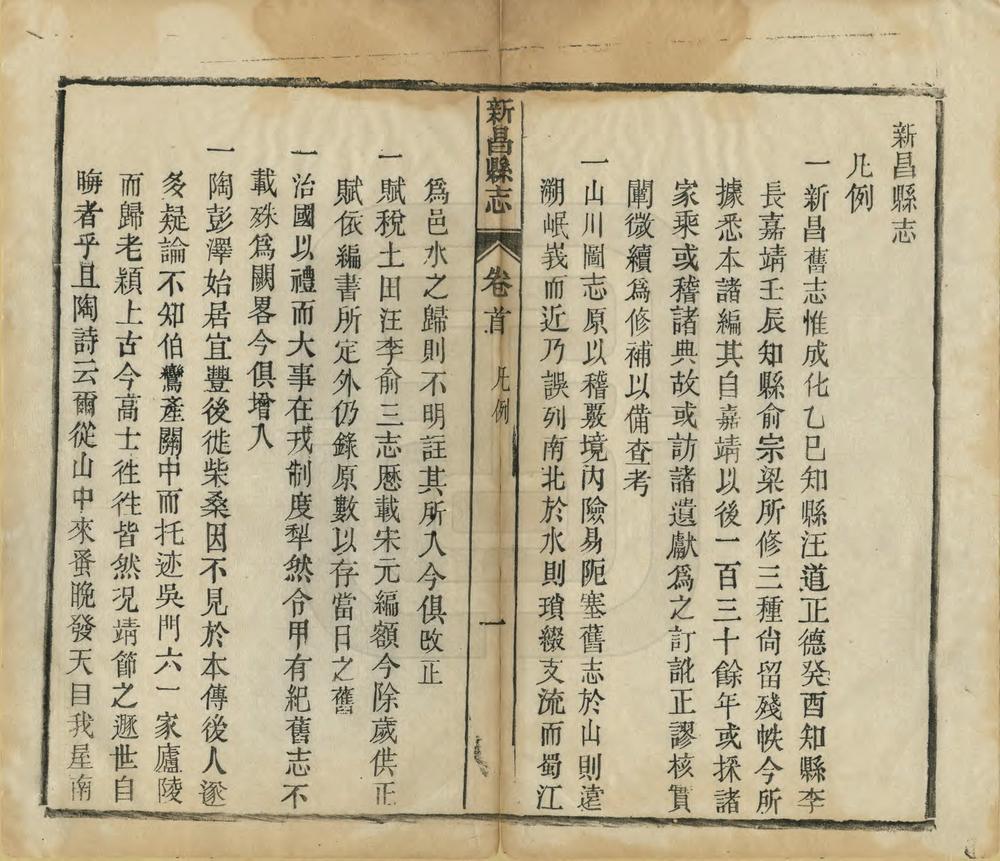 新昌縣志
凡例
一新昌舊志惟成化乙巳知縣汪道正德癸酉知縣李
長嘉靖壬辰知縣俞宗梁所修三種尙留殘帙今所
據悉本諸編其自嘉靖以後一百三十餘年或採諸
家乘或稽諸典故或訪諸遺獻爲之訂訛正謬核實
闡微續爲修補以備查考
一山川圖志原以稽覈境內險易阨塞舊志於山則遠
溯岷峩而近乃誤列南北於水則瑣綴支流而蜀江
新昌縣志
卷首
凡例
一
爲邑水之歸則不明註其所入今俱改正
一賦稅土田汪李俞三志歷載宋元編額今除歲供正
賦依編書所定外仍錄原數以存當日之舊
一治國以禮而大事在戎制度犁然令甲有紀舊志不
載殊爲闕畧今俱增入
一陶彭澤始居宜豐後徙柴桑因不見於本傳後人遂
多疑論不知伯鸞產關中而托迹吳門六一家廬陵
而歸老潁上古今高士徃徃皆然况靖節之遯世自
晦者乎且陶詩云爾從山中來蚤晚發天目我屋南